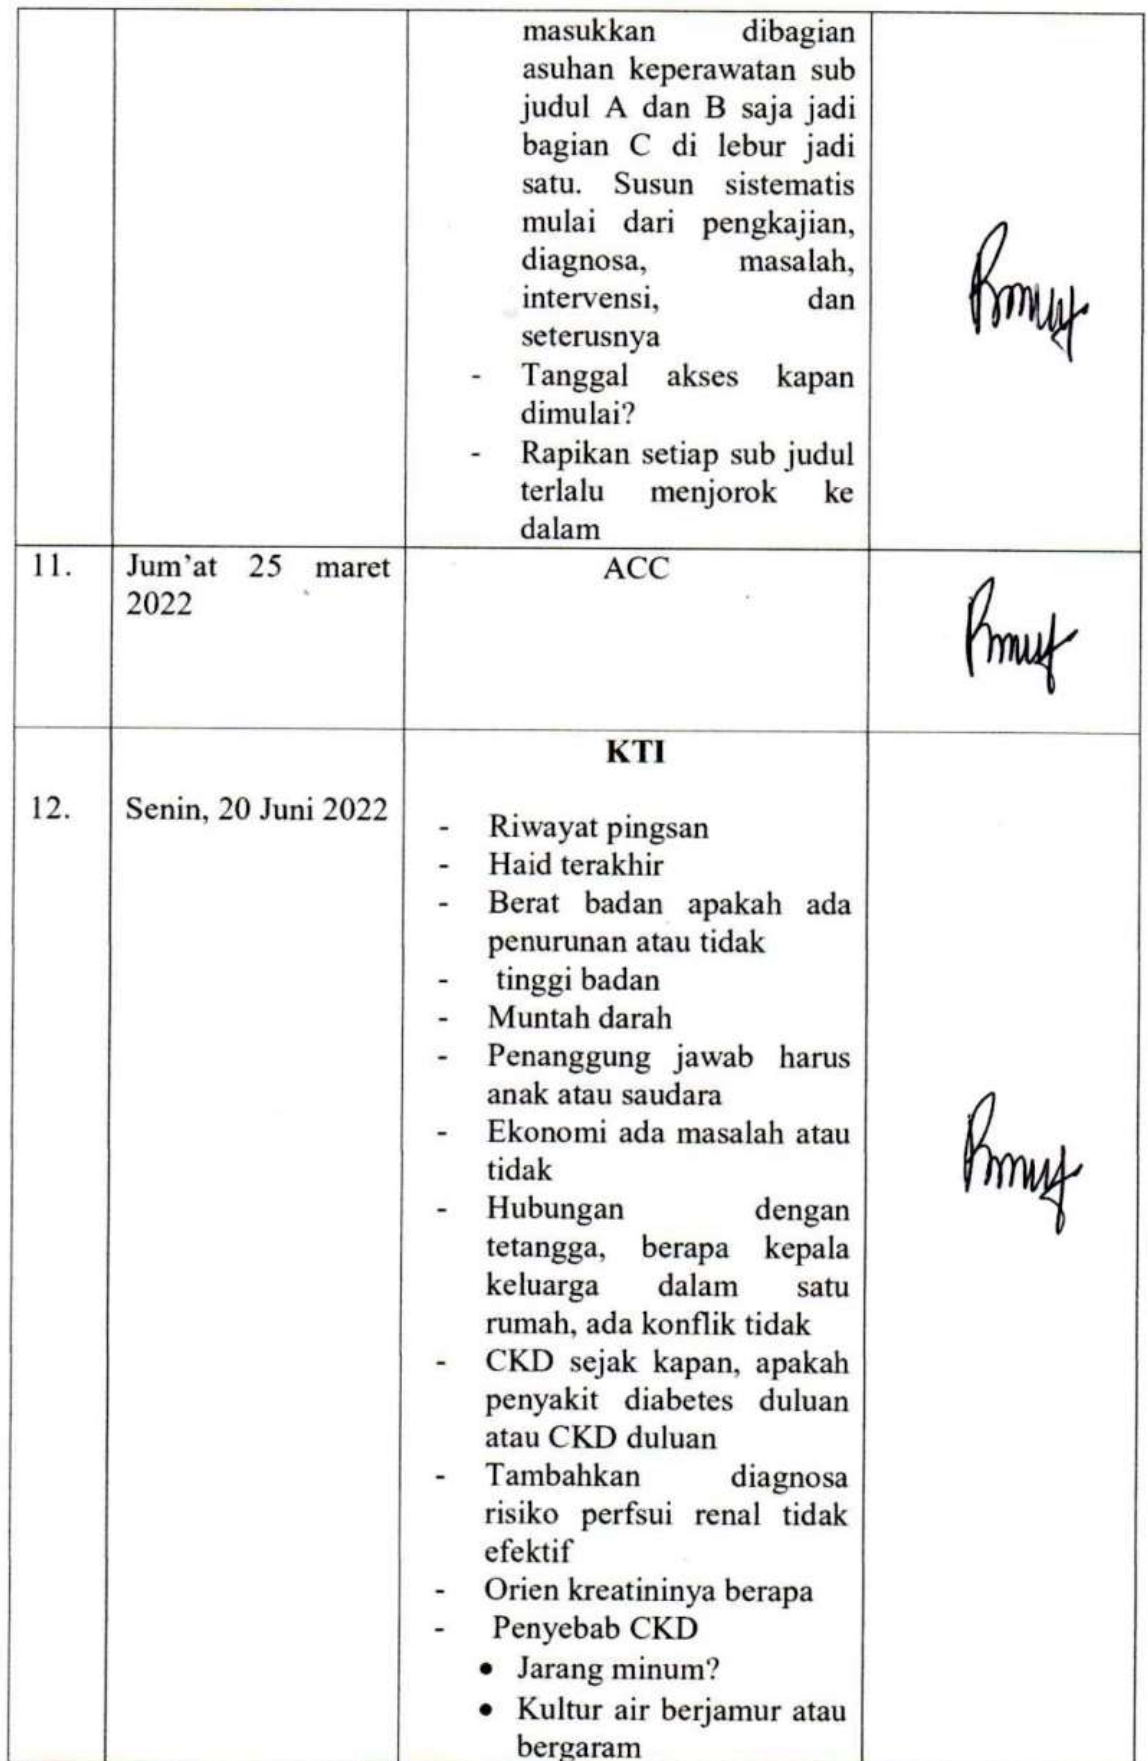 masukkan dibagian
asuhan keperawatan sub
judul A dan B saja jadi
bagian C di lebur jadi
satu. Susun sistematis
mulai dari pengkajian,
diagnosa, masalah,
intervensi, dan
seterusnya
- Tanggal akses kapan
dimulai?
- Rapikan setiap sub judul
terlalu menjorok ke
dalam
11. Jum'at 25 maret ACC
2022
KTI
12. Senin, 20 Juni 2022
- Riwayat pingsan
- Haid terakhir
- Berat badan apakah ada
penurunan atau tidak
- tinggi badan
- Muntah darah
- Penanggung jawab harus
anak atau saudara
- Ekonomi ada masalah atau
tidak
- Hubungan dengan
tetangga, berapa kepala
keluarga dalam satu
rumah, ada konflik tidak
- CKD sejak kapan, apakah
penyakit diabetes duluan
atau CKD duluan
- Tambahkan diagnosa
risiko perfsui renal tidak
efektif
- Orien kreatininya berapa
- Penyebab CKD
• Jarang minum?
• Kultur air berjamur atau
bergaram